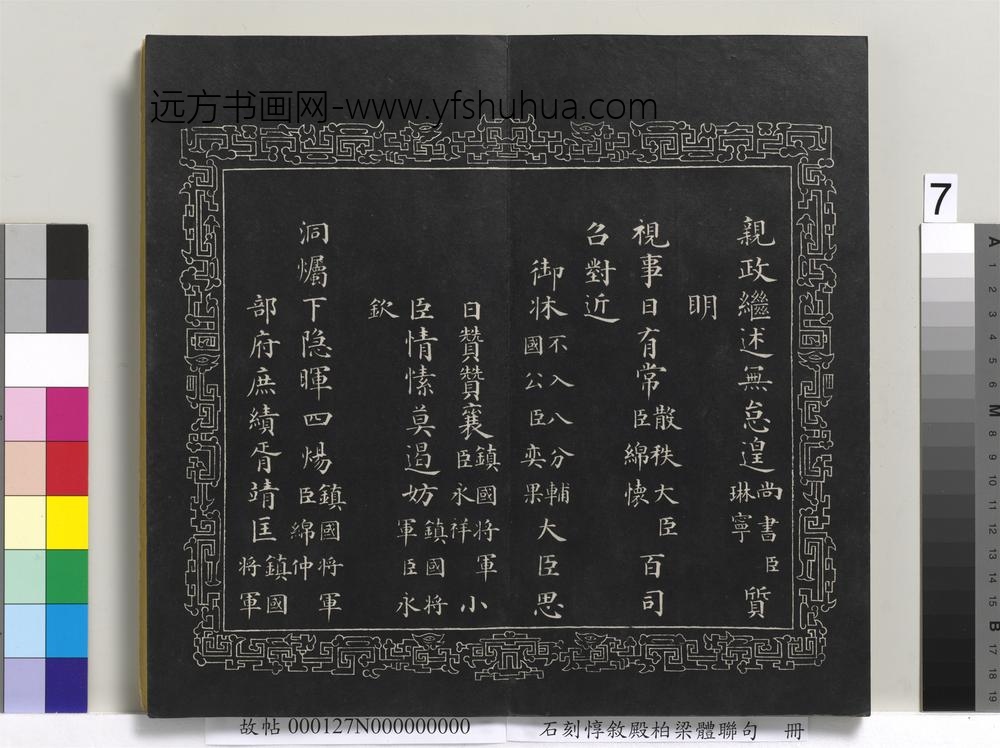 远方书画网-www.yfshuhua.com
親政繼述無怠遑尚書臣琳寧質
明
視事日有常散秩大臣臣綿懷百司
召對近
御牀不入八分輔國公臣奕果大臣思
日贊贊襄鎮國将軍臣永祥小
臣情愫莫遏妨鎮國将軍臣永
欽
洞爥下隐暉四煬鎮國将軍臣綿仲
部府庶績胥靖匡鎮國将軍
7
A 1 2 3 4 5 6 M 8 9 10 11 12 13 14 15 B 17 18 19
故帖 000127N000000000
石刻惇敘殿柏梁體聯句 冊